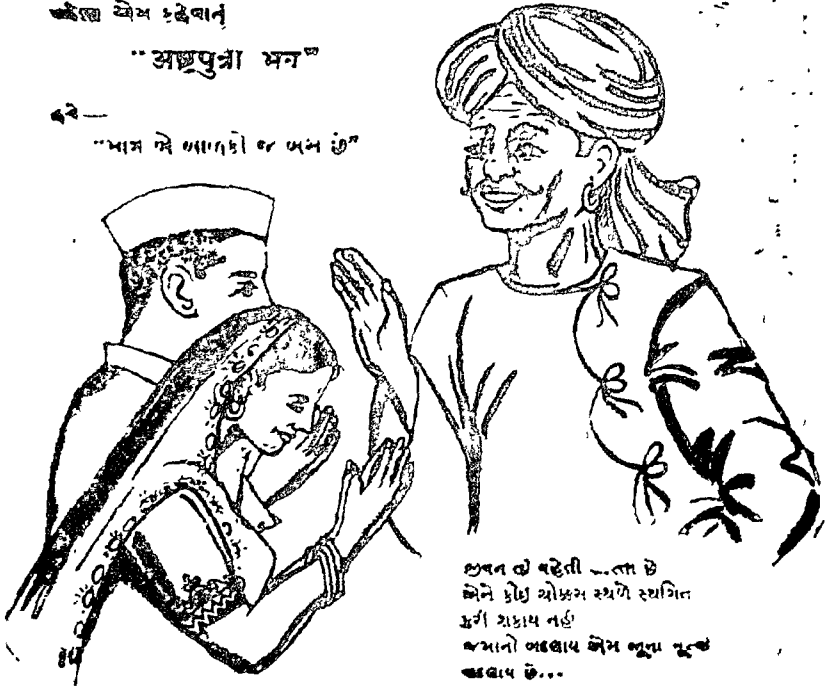 પહેલા એમ કહેવાતું
"અષ્ટપુત્રા ભવ"
હવે—
"માત્ર બે બાળકો જ બસ છે"
જીવન તો વહેતી ... છે
એને કોઇ ચોક્કસ સ્થળે સ્થગિત
કરી શકાય નહીં
જમાનો બદલાય એમ જૂના મૂલ્યો
બદલાય છે...